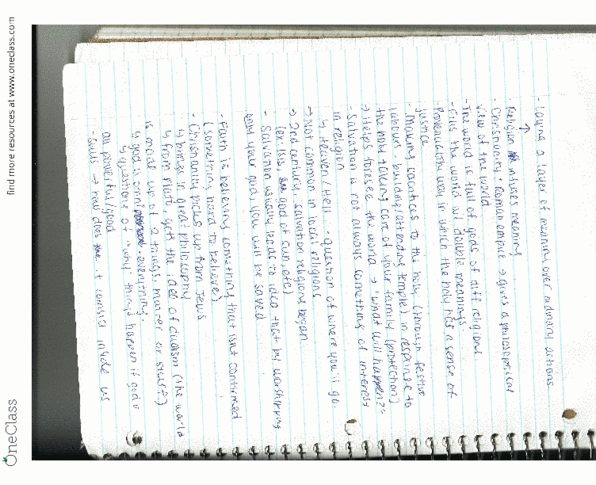 find more resources at www.oneclass.com
- Laying a layer of meaning over ordinary actions
Religion infuses meaning
- Christianity: Roman empire → gives a philosophical
view of the world
- The world is full of gods of diff religions
- Fills the world w/ double meanings.
way in which the holy has a sense of
justice
- Making sacrifices to the holy (through festive
labours, building/attending temple) in response to
the holy taking care of your family (protection)
→ Helps foresee the world → "what will happen?"
- Salvation is not always something of interest
in religion
↳ Heaven/Hell - question of where you'll go
→ Not common in local religions
→ 2nd century, salvation religions began
god of sun, etc)
- Salvation usually leads to idea that by worshipping
only your god, you will be saved
- Faith is believing something that isn't confirmed
(something hard to believe)
- Christianity picks up from Jews
↳ brings in greek philosophy
↳ from Plato, gets the idea of dualism (the world
is made up of 2 things, matter or stuff?)
↳ god is everything.
↳ questions of "why" things happen if god is
all powerful/good
- Evils → how does it consist inside us
OneClass